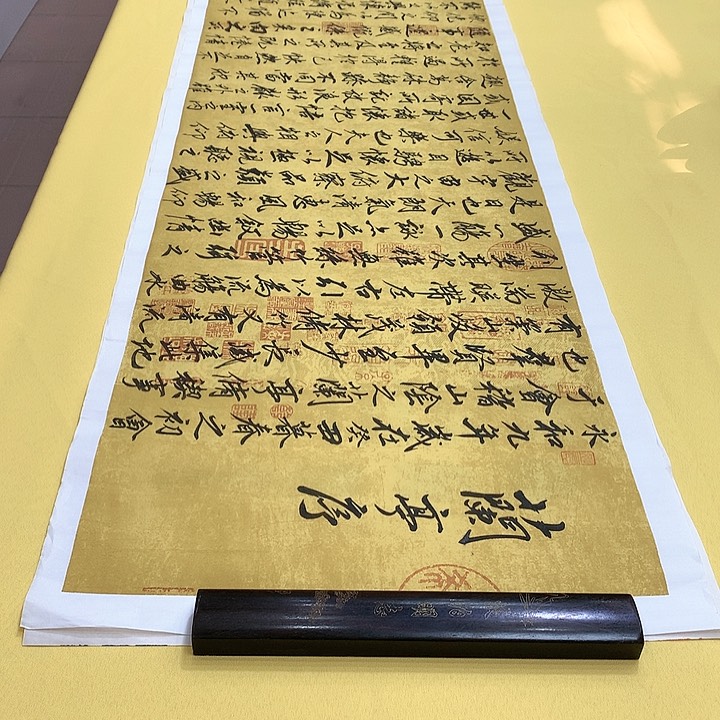 蘭亭序
永和九年歲在癸丑暮春之初會
于會稽山陰之蘭亭脩禊事
也羣賢畢至少長咸集此地
有崇山峻領茂林脩竹又有清流
激湍暎帶左右引以為流觴曲水
列坐其次雖無絲竹管弦之
盛一觴一詠亦足以暢敘幽情
是日也天朗氣清惠風和暢仰
觀宇宙之大俯察品類之盛
所以遊目騁懷足以極視聽之
娛信可樂也夫人之相與俯仰
一世或取諸懷抱悟言一室之內
或因寄所託放浪形骸之外雖
趣舍萬殊靜躁不同當其欣
於所遇暫得於己怏然自足不
知老之將至及其所之既惓情
隨事遷感慨係之矣向之所欣